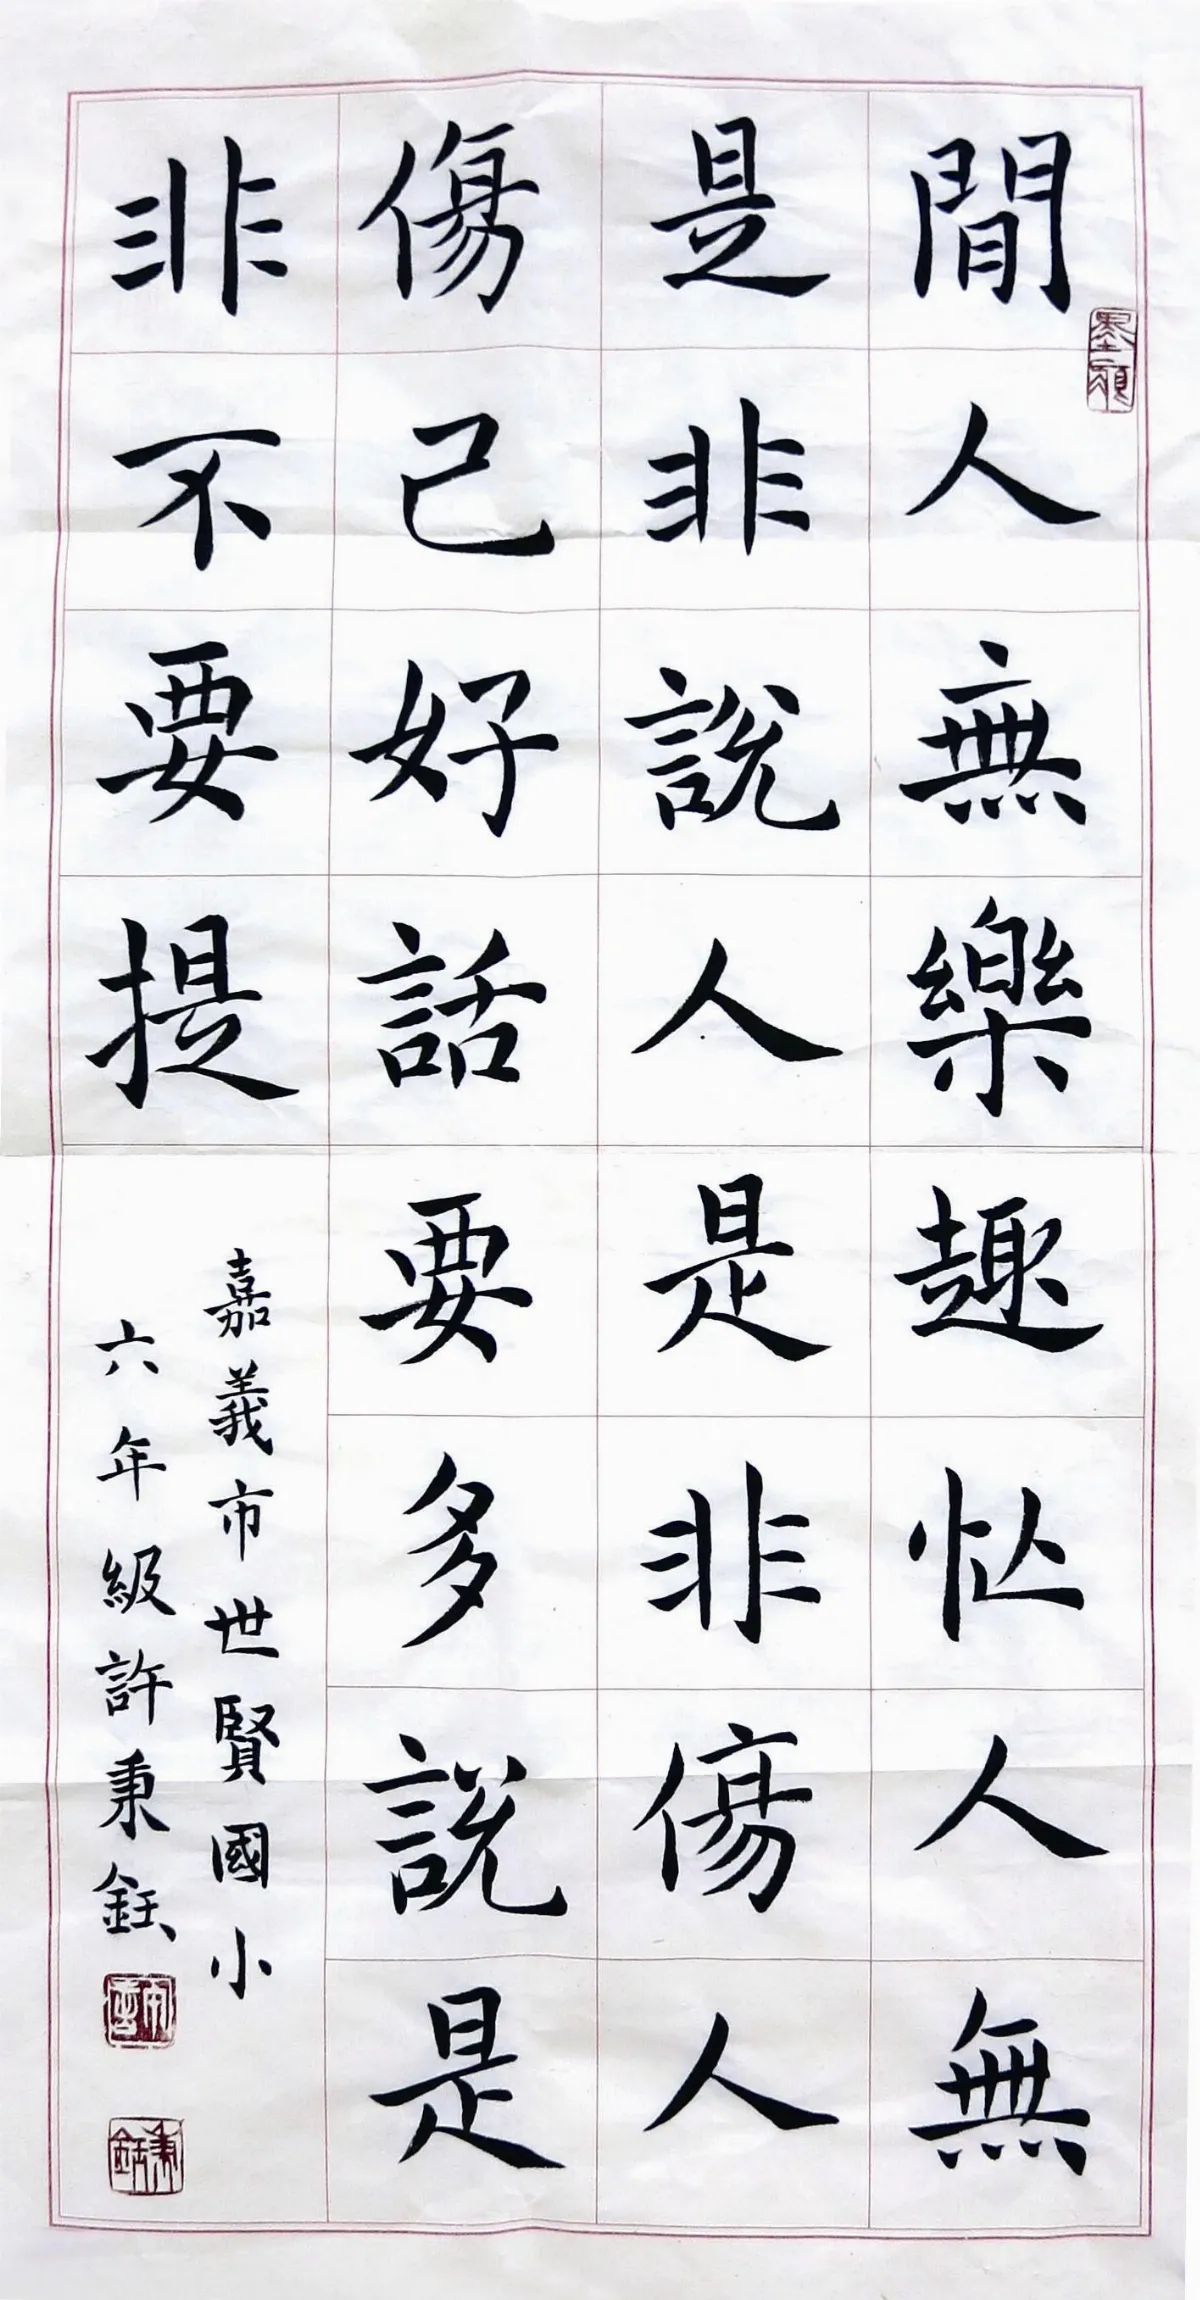 閒人無樂趣忙人無
是非說人是非傷人
傷己好話要多說是
非不要提
嘉義市世賢國小
六年級許秉鈺
墨願
秉鈺